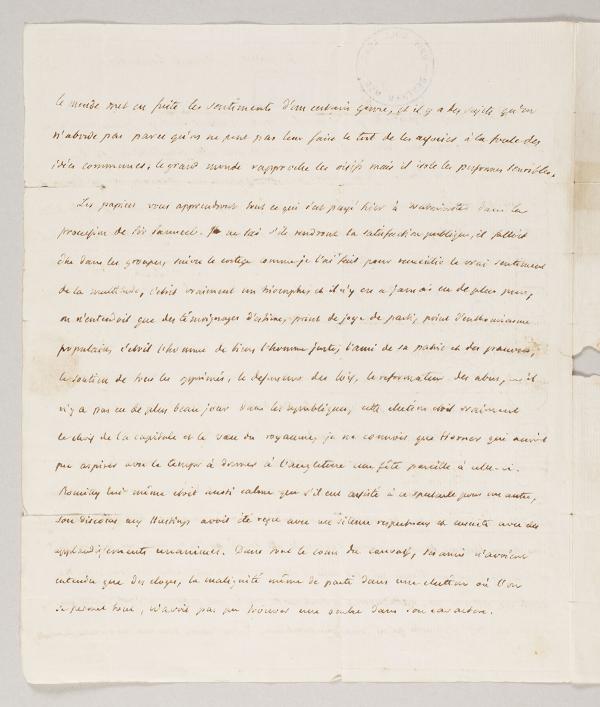 le monde met en fuite les sentiments d'un certain genre, et il y a des sujets qu'on
n'aborde pas parce qu'on ne veut pas leur faire le tort de les associer à la foule des
idées communes. le grand monde rapproche les oisifs mais il isole les personnes sensibles.
Les papiers vous apprendront tout ce qui s'est passé hier à Westminster dans la
procession de Sir Samuel. Je ne sai s'ils rendront la satisfaction publique, il falloit
être dans les groupes, suivre le cortège comme je l'ai fait pour recueillir le vrai sentiment
de la multitude, c'etoit vraiment un triomphe, et il n'y en a jamais eu de plus pur,
on n'entendoit que des témoignages d'estime, point de joye de parti, point d'enthousiasme
populaire, c'etoit l'homme de bien, l'homme juste, l'ami de sa patrie et des pauvres,
le soutien de tous les opprimés, le defenseur des loix, le reformateur des abus,
n'y a pas eu de plus beau jour dans les republiques, cette election etoit vraiment
le choix de la capitale et le vœu du royaume, je ne connois que Horner qui auroit
pu aspirer avec le temps à donner à l'angleterre une fête pareille à celle-ci.
Romilly lui même etoit aussi calme que s'il eut assisté à ce spectacle pour un autre,
son discours aux Hustings avoit été reçu avec un silence respectueux et ensuite avec des
applaudissements unanimes. Dans tout le cours du canvass, ses amis n'avoient
entendu que des eloges, la malignité même de parti dans une election où l'on
se permet tout, n'avoit pas pu trouver une ombre dans son caractere.